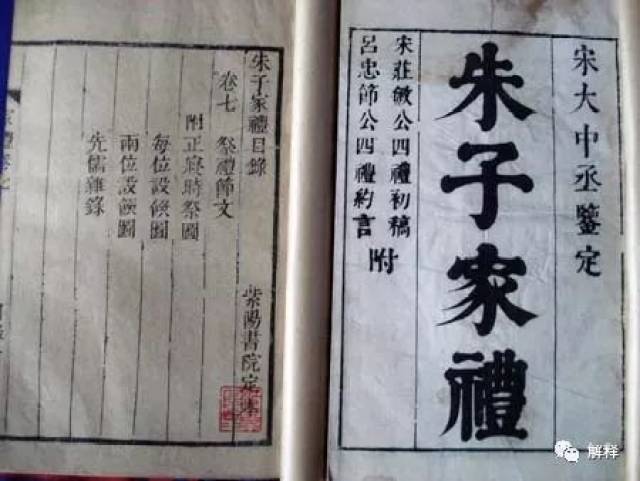 宋大中丞鑒定
朱子家禮
宋莊敏公四禮初稿
呂忠節公四禮約言
附
朱子家禮目錄
紫陽書院定本
卷七 祭禮節文
附正寢時祭圖
每位設饌圖
兩位設饌圖
先儒雜錄
解释